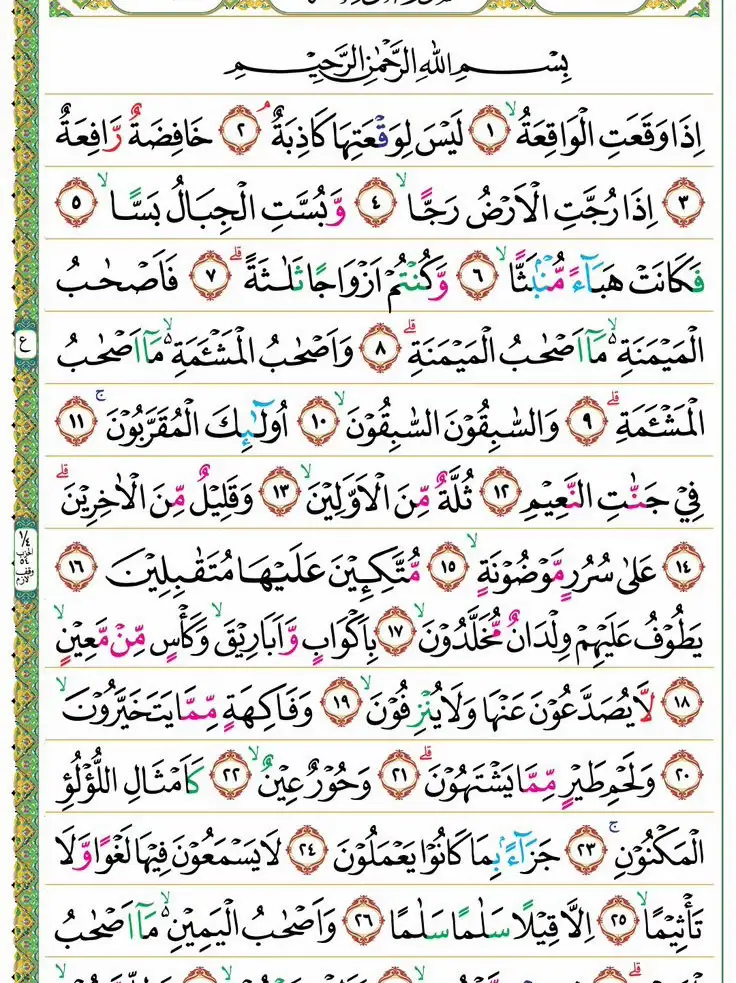 بِسْمِ اللهِ الرَّحْمٰنِ الرَّحِيْمِ
اِذَا وَقَعَتِ الْوَاقِعَةُ ۙ ١ لَيْسَ لِوَقْعَتِهَا كَاذِبَةٌ ۘ ٢ خَافِضَةٌ رَّافِعَةٌ
٣ اِذَا رُجَّتِ الْاَرْضُ رَجًّا ۙ ٤ وَّبُسَّتِ الْجِبَالُ بَسًّا ۙ ٥
فَكَانَتْ هَبَآءً مُّنْۢبَثًّا ۙ ٦ وَّكُنْتُمْ اَزْوَاجًا ثَلٰثَةً ؕ ٧ فَاَصْحٰبُ
الْمَيْمَنَةِ ۙ مَاۤ اَصْحٰبُ الْمَيْمَنَةِ ؕ ٨ وَاَصْحٰبُ الْمَشْـَٔمَةِ ۙ مَاۤ اَصْحٰبُ
الْمَشْـَٔمَةِ ؕ ٩ وَالسّٰبِقُوْنَ السّٰبِقُوْنَ ۙ ١٠ اُولٰٓئِكَ الْمُقَرَّبُوْنَ ۚ ١١
فِيْ جَنّٰتِ النَّعِيْمِ ١٢ ثُلَّةٌ مِّنَ الْاَوَّلِيْنَ ۙ ١٣ وَقَلِيْلٌ مِّنَ الْاٰخِرِيْنَ ؕ
١٤ عَلٰى سُرُرٍ مَّوْضُوْنَةٍ ۙ ١٥ مُّتَّكِـِٕيْنَ عَلَيْهَا مُتَقٰبِلِيْنَ ١٦
يَطُوْفُ عَلَيْهِمْ وِلْدَانٌ مُّخَلَّدُوْنَ ۙ ١٧ بِاَكْوَابٍ وَّاَبَارِيْقَ ۙ وَكَأْسٍ مِّنْ مَّعِيْنٍ ۙ
١٨ لَّا يُصَدَّعُوْنَ عَنْهَا وَلَا يُنْزِفُوْنَ ۙ ١٩ وَفَاكِهَةٍ مِّمَّا يَتَخَيَّرُوْنَ ۙ
٢٠ وَلَحْمِ طَيْرٍ مِّمَّا يَشْتَهُوْنَ ؕ ٢١ وَحُوْرٌ عِيْنٌ ۙ ٢٢ كَاَمْثَالِ اللُّؤْلُؤِ
الْمَكْنُوْنِ ۚ ٢٣ جَزَآءًۢ بِمَا كَانُوْا يَعْمَلُوْنَ ٢٤ لَا يَسْمَعُوْنَ فِيْهَا لَغْوًا وَّلَا
تَأْثِيْمًا ۙ ٢٥ اِلَّا قِيْلًا سَلٰمًا سَلٰمًا ٢٦ وَاَصْحٰبُ الْيَمِيْنِ ۙ مَاۤ اَصْحٰبُ
ع
١/٤
الحزب
٥٤
وقف
لازم